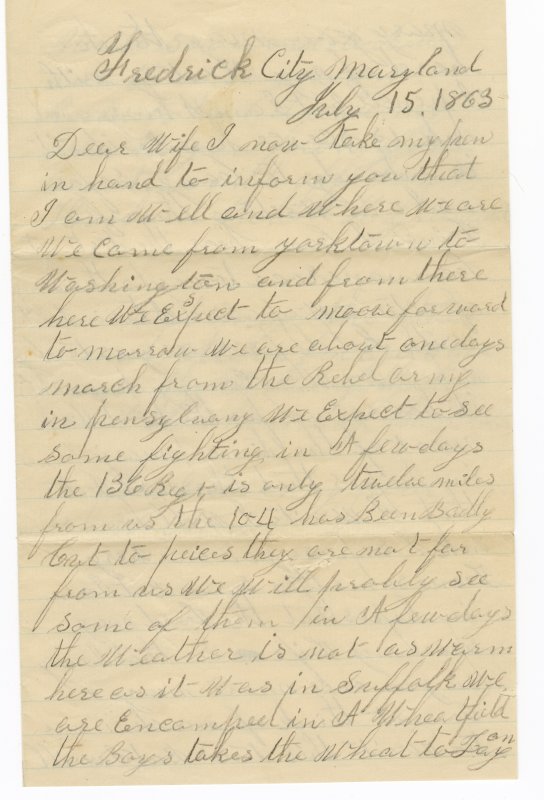 Fredrick City Maryland
July 15. 1863
Dear Wife I now take my pen
in hand to inform you that
I am Well and Where We are
We Came from yorktown to
Washington and from there
here We Expect to moove forward
to morrow We are about one days
march from the Rebel army
in pensylvany We Expect to see
some fighting in A few days
the 136 Regt is only twelve miles
from us the 104 has Been Badly
Cut to peices they are not far
from us We Will probly see
some of them in A few days
the Weather is not as Warm
here as it Was in Suffolk We
are Encamped in A Wheatfield
the Boys takes the Wheat to Lay on